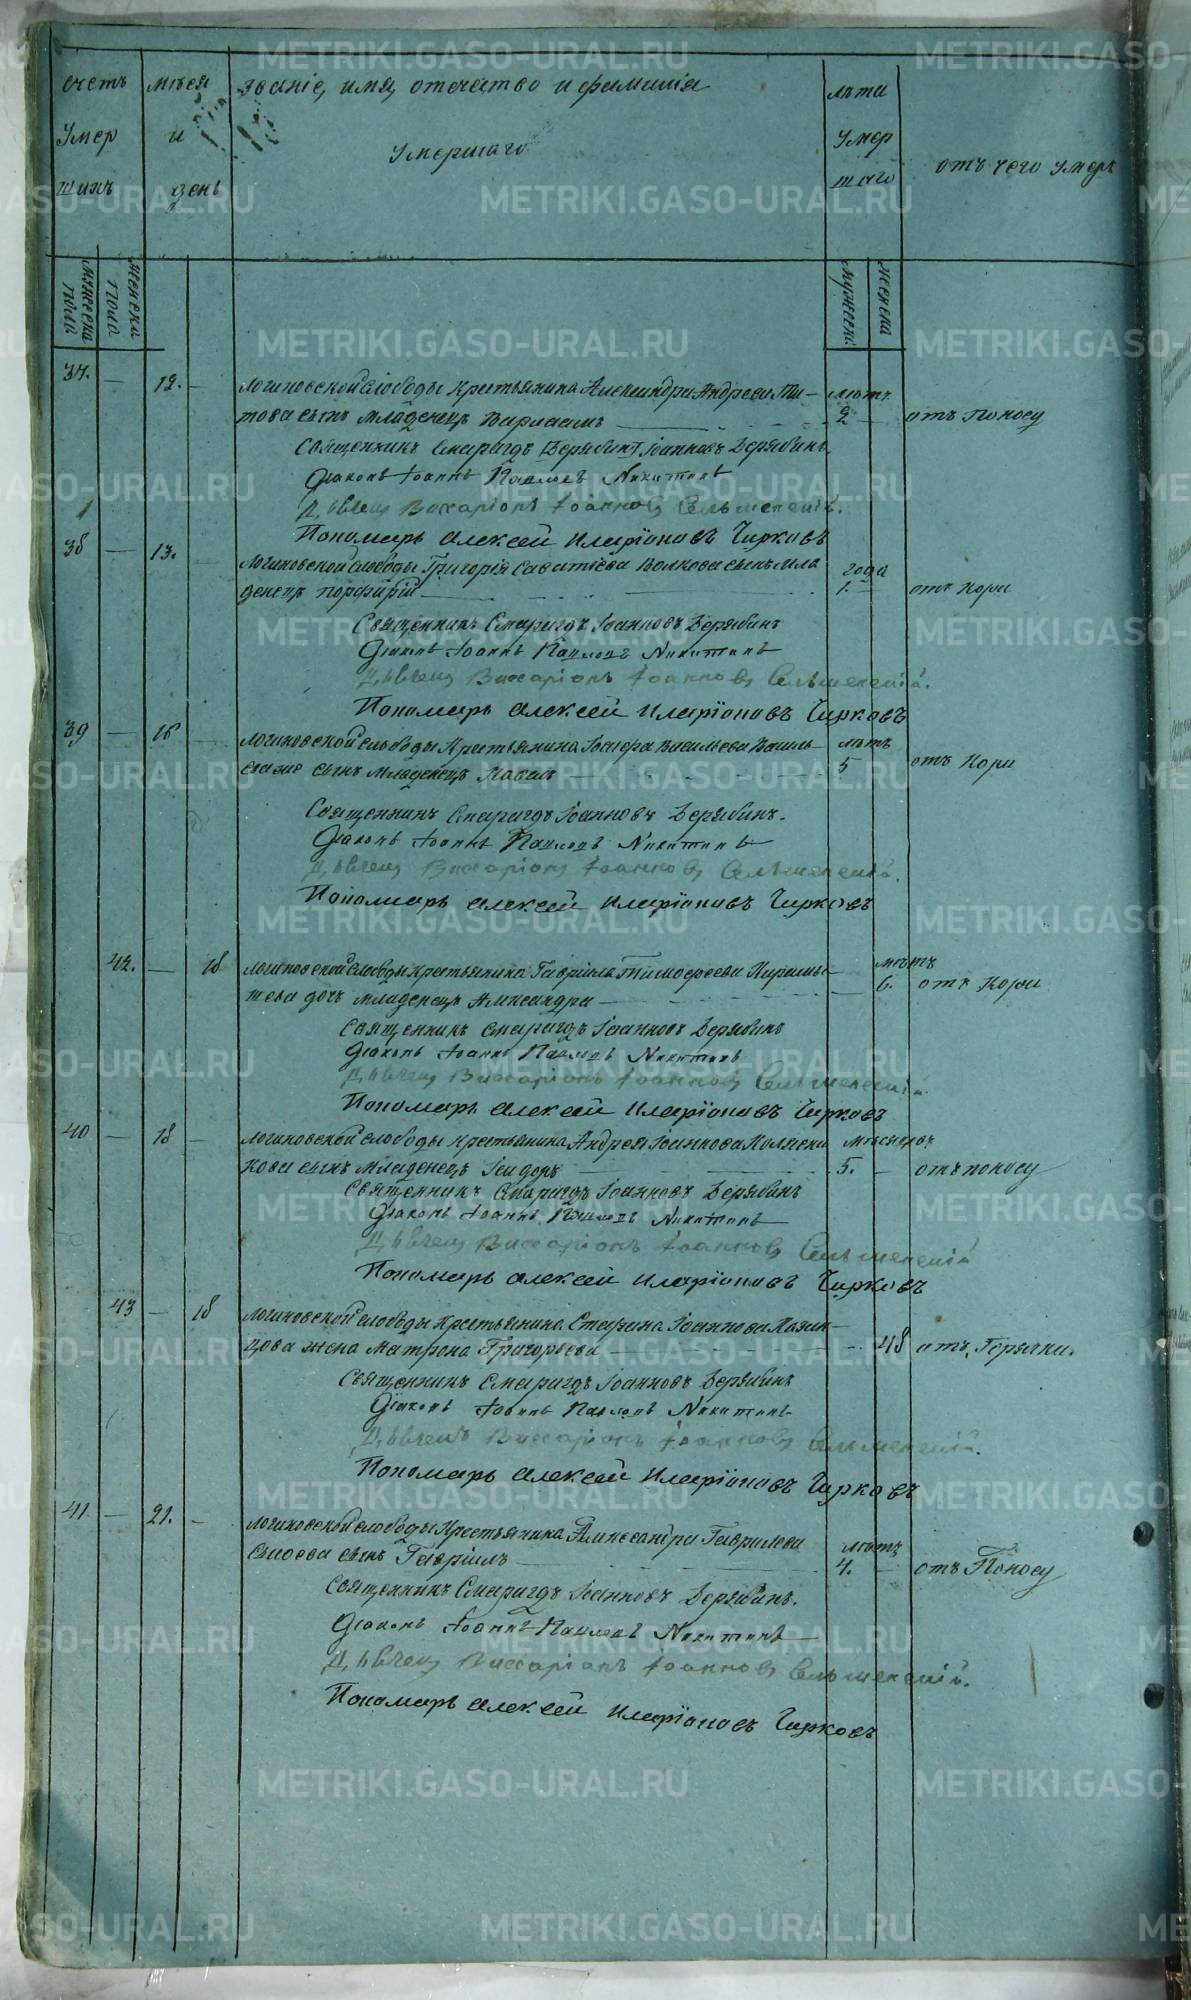 METRIKI.GASO-URAL.RU
счетъ мѣсяц званіе, имя, отечество и фамилія лѣта
умер и умершаго умер отъ чего умеръ
шихъ день шаго
мужеска пола женска пола мужеск. женска
37. — 12. — Логиновской слободы крестьянина Александра Андреева Ти- лѣтъ
това сынъ младенецъ Варлаамъ 2 отъ Поносу
Священникъ Смарагдъ Іоанновъ Дерябинъ.
Діаконъ Іоаннъ Павловъ Никитинъ
Дьячецъ Виссаріонъ Іоанновъ
Пономарь Алексей Иларіоновъ Чирковъ
38 — 13. — Логиновской слободы Григорія Саватіева Волкова сынъ мла года
денецъ Порфирій 1. отъ Кори
Священникъ Смарагдъ Іоанновъ Дерябинъ
Діаконъ Іоаннъ Павловъ Никитинъ
Дьячецъ Виссаріонъ Іоанновъ
Пономарь Алексей Иларіоновъ Чирковъ
39 — 16 — Логиновской слободы Крестьянина Іосифа Васильева лѣтъ
сынъ Младенецъ 5 отъ Кори
Священникъ Смарагдъ Іоанновъ Дерябинъ.
Діаконъ Іоаннъ Павловъ Никитинъ
Дьячецъ Виссаріонъ Іоанновъ
Пономарь Алексей Иларіоновъ Чирковъ
42. — 18 Логиновской слободы крестьянина Гавріила Тимофеева лѣтъ
дочь младенецъ Александра 6. отъ Кори
Священникъ Смарагдъ Іоанновъ Дерябинъ
Діаконъ Іоаннъ Павловъ Никитинъ
Дьячецъ Виссаріонъ Іоанновъ
Пономарь Алексей Иларіоновъ Чирковъ
40 — 18 — Логиновской слободы крестьянина Андрея Іоаннова Колясни мѣсяцовъ
кова сынъ Младенецъ Исидоръ 5. отъ поносу
Священникъ Смарагдъ Іоанновъ Дерябинъ
Діаконъ Іоаннъ Павловъ Никитинъ
Дьячецъ Виссаріонъ Іоанновъ
Пономарь Алексей Иларіоновъ Чирковъ
43 — 18 Логиновской слободы крестьянина Іоаннова Казан-
цова жена Матрона Григорьева 48 отъ Горячки.
Священникъ Смарагдъ Іоанновъ Дерябинъ
Діаконъ Іоаннъ Павловъ Никитинъ
Дьячецъ Виссаріонъ Іоанновъ
Пономарь Алексей Иларіоновъ Чирковъ
41 — 21. — Логиновской слободы крестьянина Александра Гаврилова лѣтъ
Сысоева сынъ Гавріилъ 4. отъ Поносу
Священникъ Смарагдъ Іоанновъ Дерябинъ.
Діаконъ Іоаннъ Павловъ Никитинъ
Дьячецъ Виссаріонъ Іоанновъ
Пономарь Алексей Иларіоновъ Чирковъ